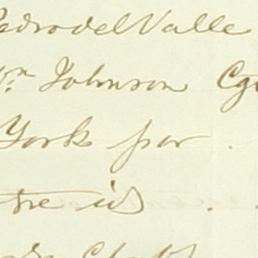 Pedro del Valle
Wm Johnson
York por
tre id